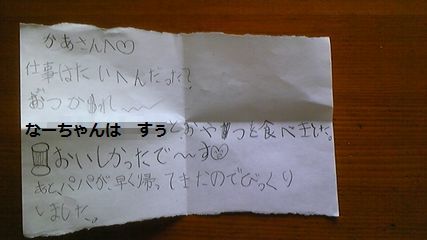 かあさんへ♡
仕事はたいへんだった?
おつかれ〜〜
なーちゃんは すぅとおやつを食べました。
おいしかったで〜す♡
あとパパが、早く帰ってきたのでびっくり
いました。